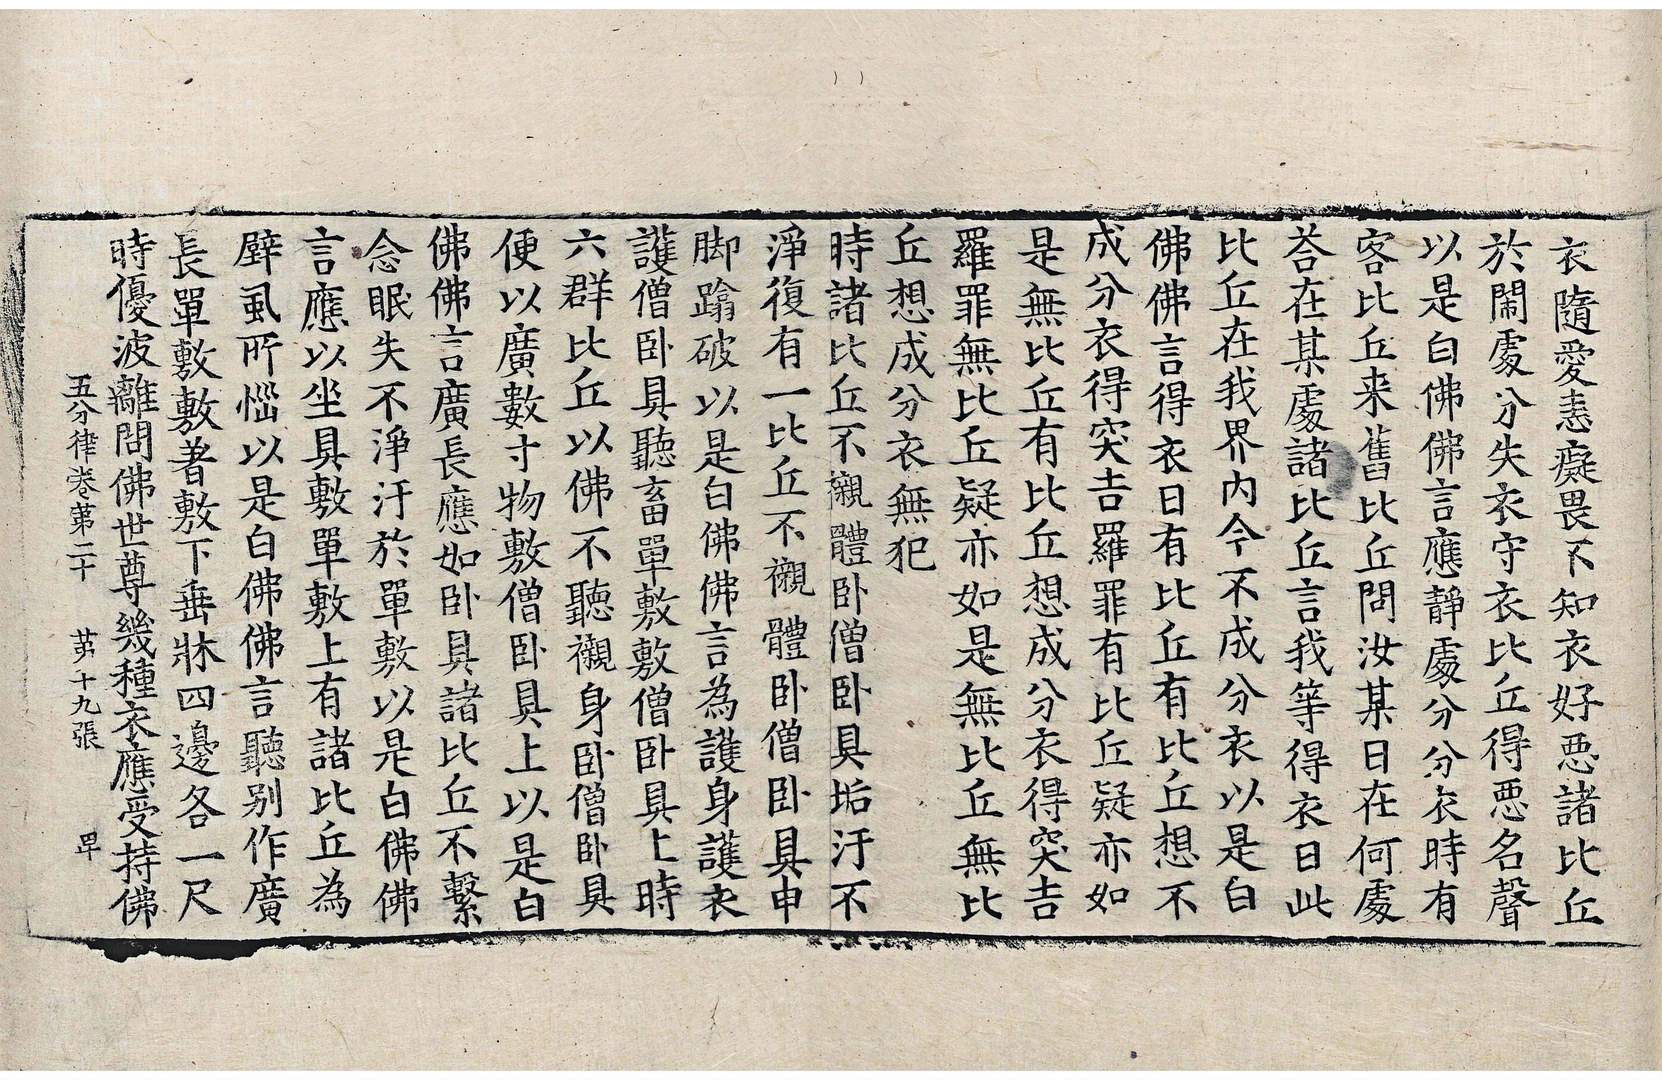 衣隨愛恚癡畏不知衣好惡諸比丘
於閙處分失衣守衣比丘得惡名聲
以是白佛佛言應靜處分分衣時有
客比丘来舊比丘問汝某日在何處
荅在某處諸比丘言我等得衣日此
比丘在我界内今不成分衣以是白
佛佛言得衣日有比丘有比丘想不
成分衣得突吉羅罪有比丘疑亦如
是無比丘有比丘想成分衣得突吉
羅罪無比丘疑亦如是無比丘無比
丘想成分衣無犯
時諸比丘不襯體卧僧卧具垢汙不
淨復有一比丘不襯體卧僧卧具申
脚蹋破以是白佛佛言為護身護衣
護僧卧具聽畜單敷敷僧卧具上時
六群比丘以佛不聽襯身卧僧卧具
便以廣數寸物敷僧卧具上以是白
佛佛言廣長應如卧具諸比丘不繫
念眠失不淨汙於單敷以是白佛佛
言應以坐具敷單敷上有諸比丘為
壁虱所惱以是白佛佛言聽别作廣
長單敷敷著敷下垂牀四邊各一尺
時優波離問佛世尊幾種衣應受持佛
五分律卷第二十 苐十九張